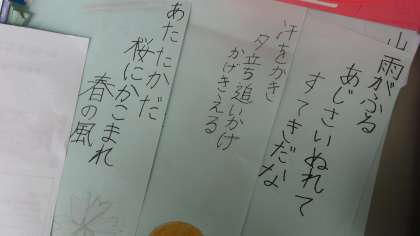 雨がふる
あじさいぬれて
すてきだな
汗をかき
夕立ち追いかけ
かげきえる
あたたかだ
桜にかこまれ
春の風